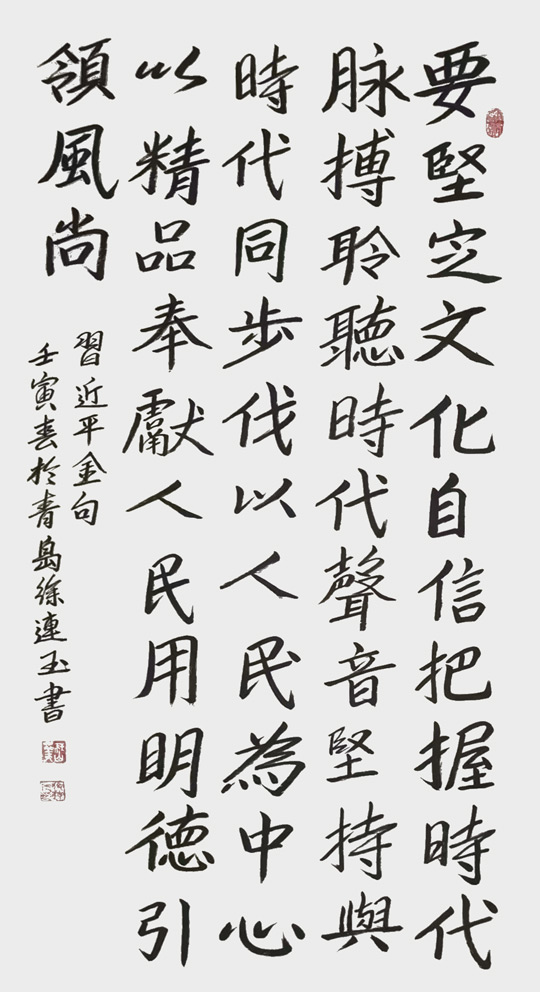 要堅定文化自信把握時代
脉搏聆聽時代聲音堅持與
時代同步伐以人民為中心
以精品奉獻人民用明德引
領風尚
習近平金句
壬寅春於青島徐連玉書